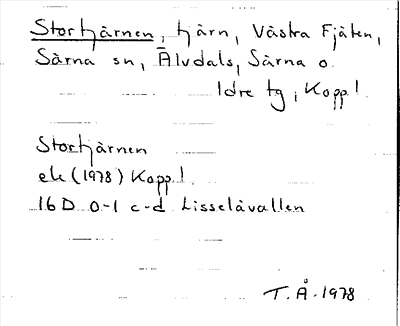 Stortjärnen, tjärn, Västra Fjäten,
Särna sn, Älvdals, Särna o.
Idre tg, Kopp!
Stortjärnen
ek (1978) Kopp!
16D 0-1 c-d Lisselåvallen
T.Å. 1978